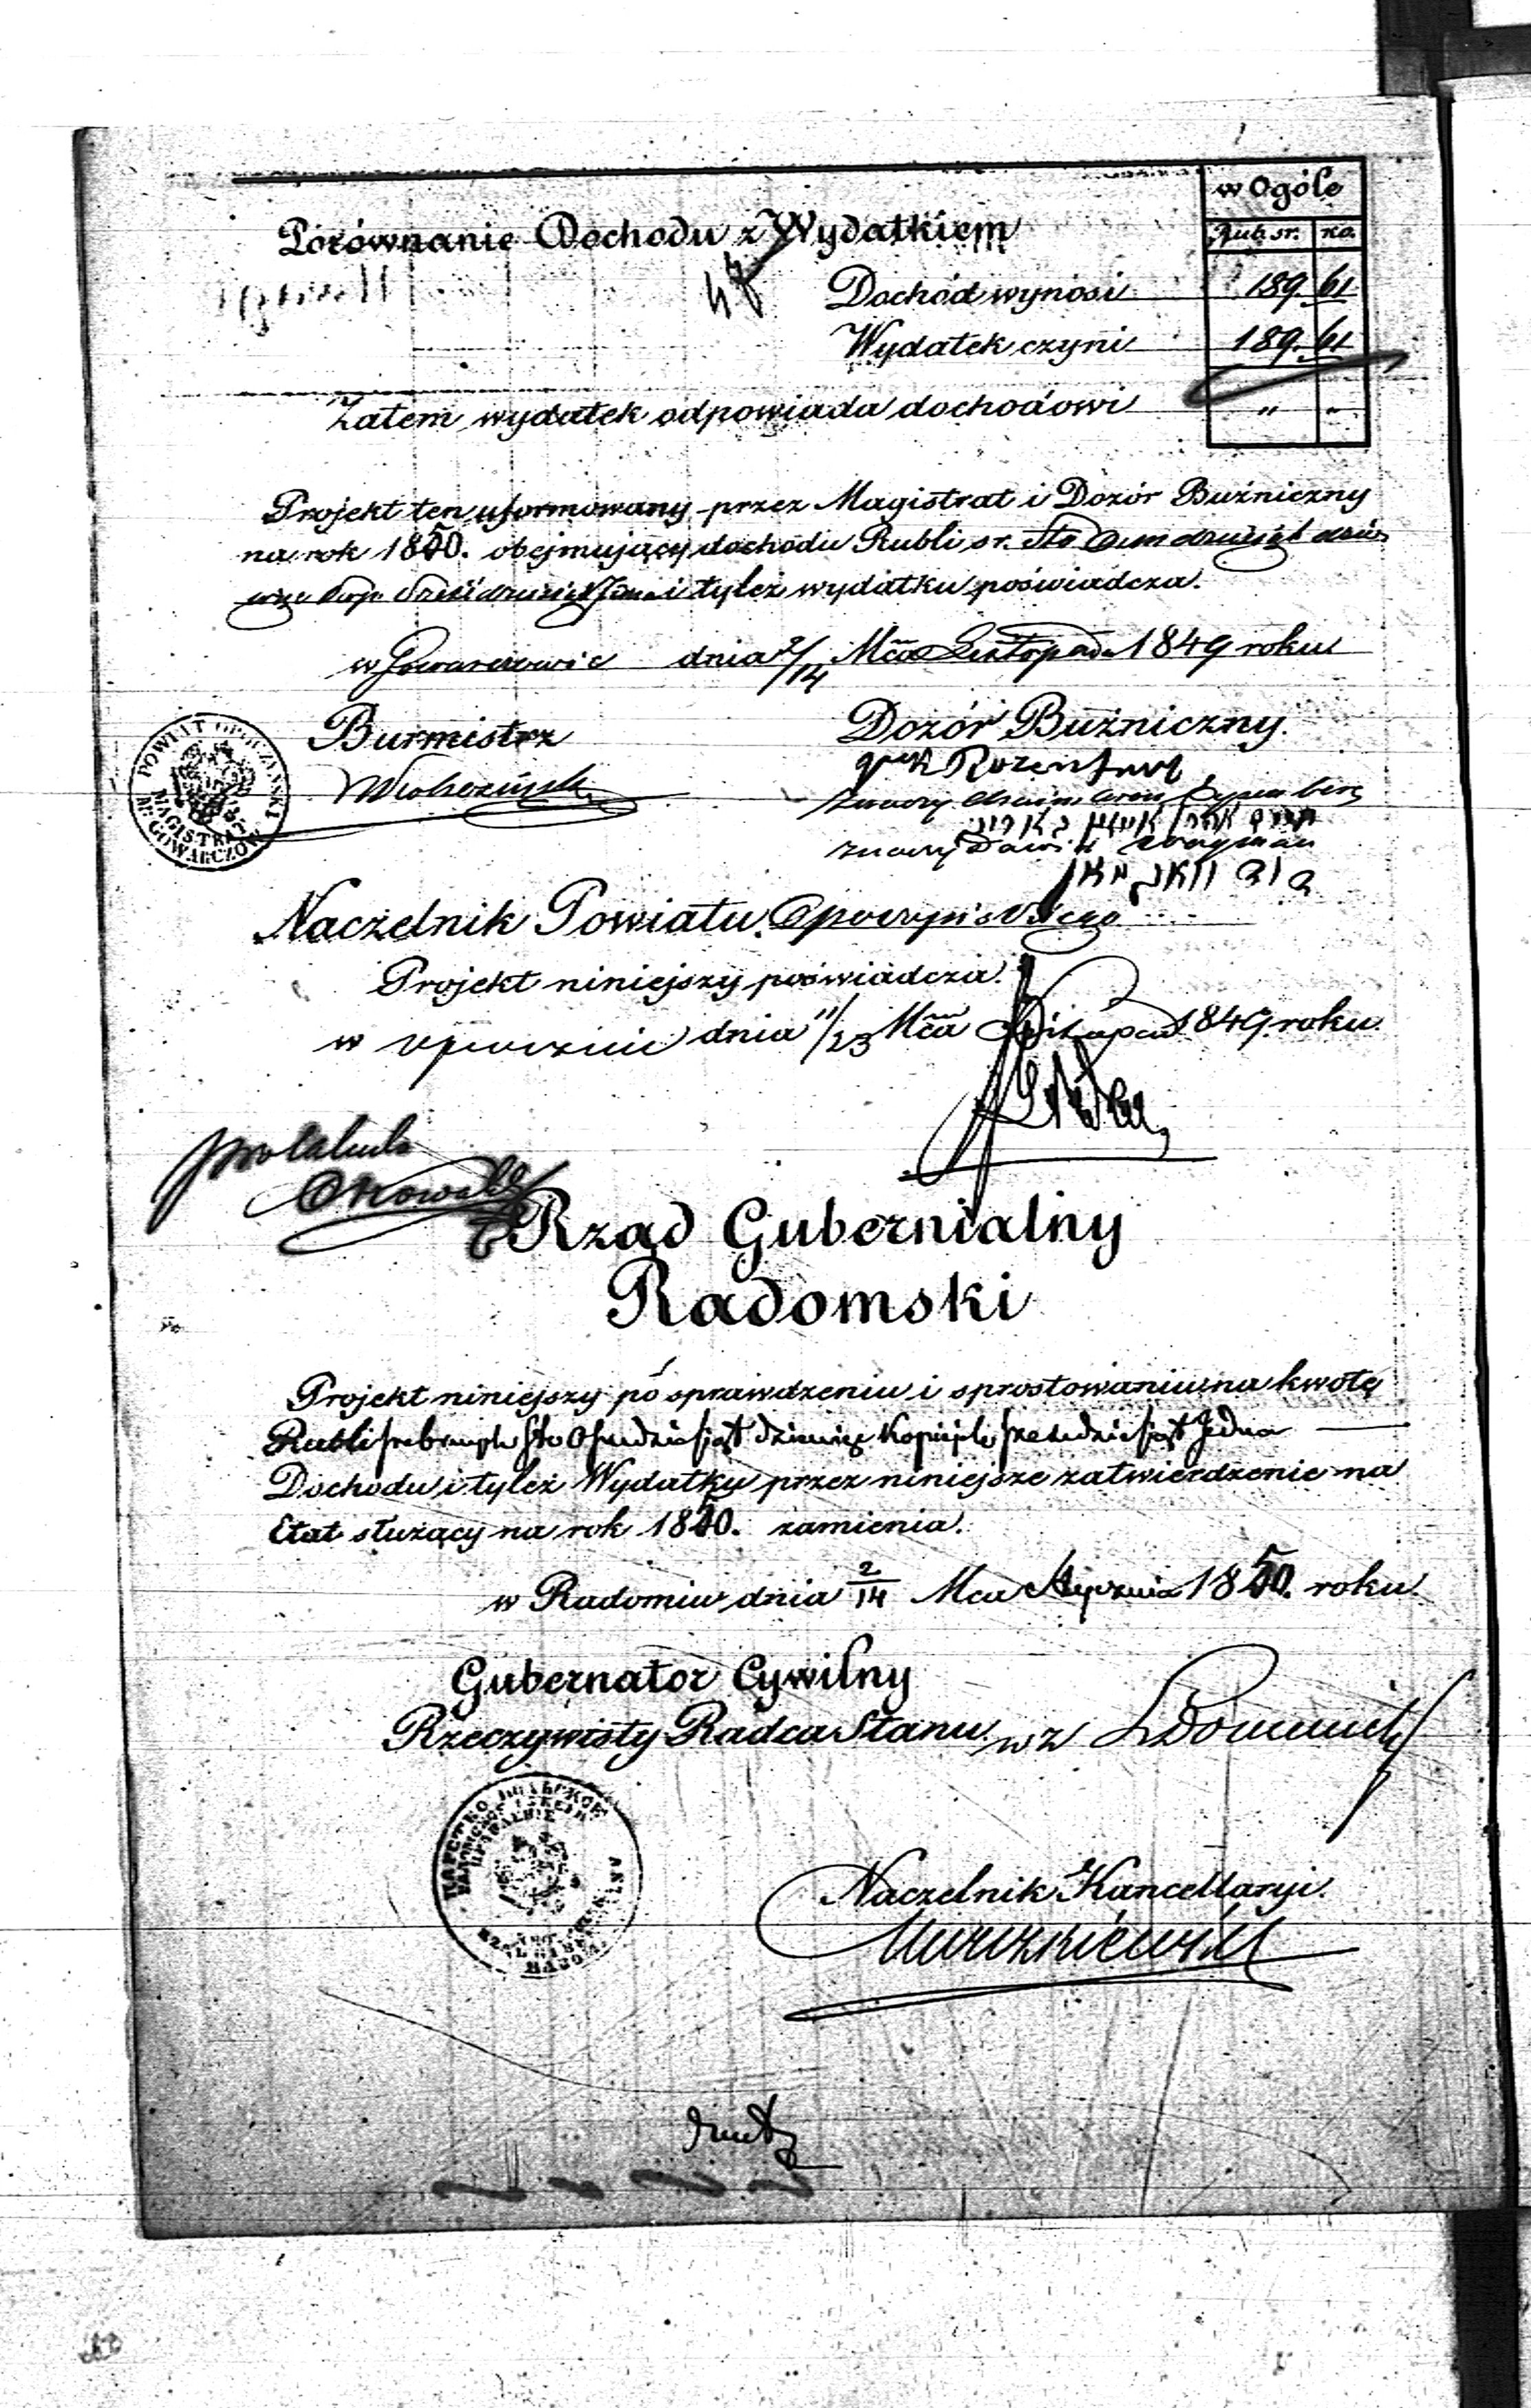 w Ogóle
Porównanie Dochodu z Wydatkiem
Rub. sr. ko.
Dochód wynosi 189. 61
Wydatek czyni 189. 61
Zatem wydatek odpowiada dochodowi " "
Projekt ten uformowany przez Magistrat i Dozór Bużniczny
na rok 1850. obejmujący dochodu Rubli sr. Sto Osmdziesiąt dzie
więc kop. Sześćdziesiąt Jeden i tyleż wydatku poświadcza.
w Gowarczowie dnia 2/14 Mca Listopada 1849 roku
POWIAT OPOCZYŃSKI
MAGISTRAT
M. GOWARCZÓW
Burmistrz
Dozór Bużniczny.
znaczy Chaim Aron
znaczy Dawid Wagman
דוד וואגמאן
Naczelnik Powiatu Opoczyńskiego
Projekt niniejszy poświadcza.
w Opocznie dnia 11/23 Mca Listopada 1849 roku.
Rząd Gubernialny
Radomski
Projekt niniejszy po sprawdzeniu i sprostowaniu na kwotę
Rubli srebrnych sto Ośmdziesiąt dziewięć Kopiejek sześćdziesiąt Jedna
Dochodu i tyleż Wydatku przez niniejsze zatwierdzenie na
Etat służący na rok 1850. zamienia.
w Radomiu dnia 2/14 Mca Stycznia 1850. roku.
Gubernator Cywilny
Rzeczywisty Radca Stanu wz
Naczelnik Kancellaryi.